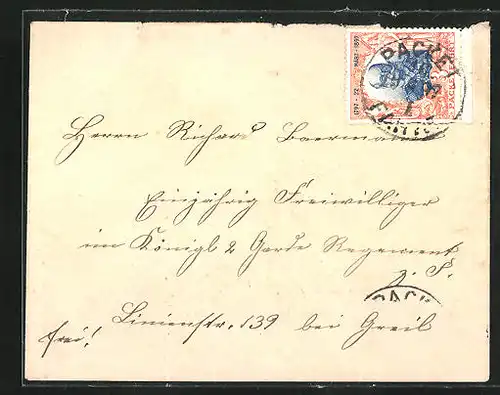 1797 - 22 MÄRZ - 1897
PACKET
PACKETFAHRT
Herrn Richard
Einjährig Freiwilliger
im Königl 2 Garde Regement
z. F.
PACK
Linienstr. 139 bei Greib
frei!